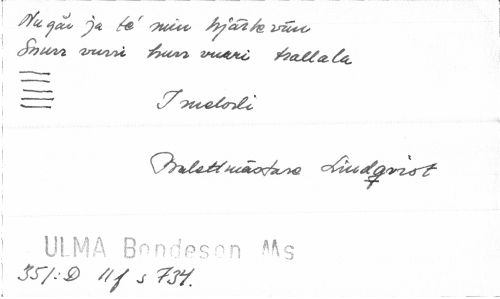 Nu går ja te' min hjärtevän
Snurr vurri hurr vurri trallala
1 melodi
Balettmästare Lindqvist
ULMA Bondeson Ms
351:D 11f s 734.